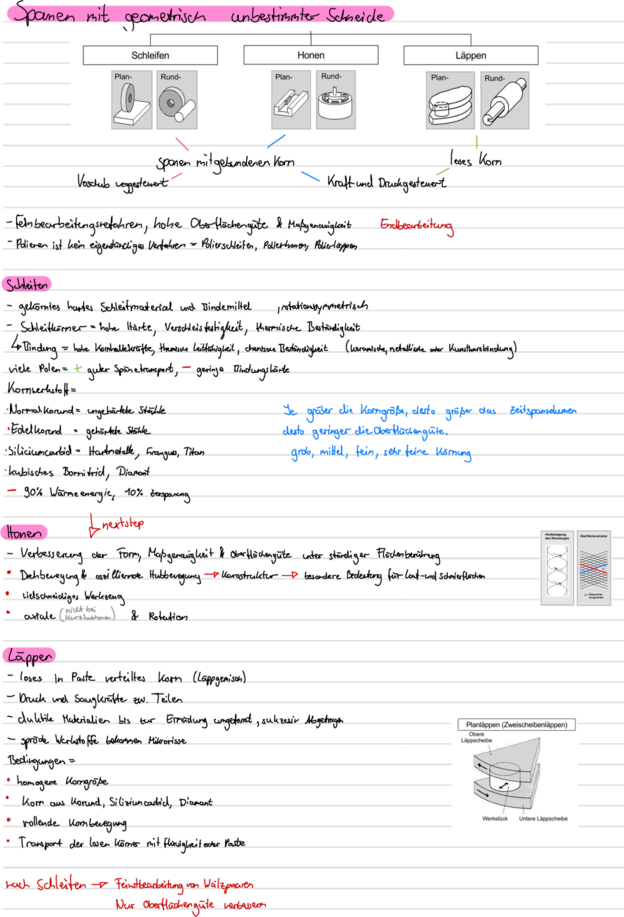 Spanen mit geometrisch unbestimmter Schneide
Schleifen Honen Läppen
Plan- Rund- Plan- Rund- Plan- Rund-
spanen mit gebundenen Korn loses Korn
Vorschub weggesteuert Kraft und Druckgesteuert
- Feinbearbeitungsverfahren, hohe Oberflächengüte & Maßgenauigkeit Endbearbeitung
- Polieren ist kein eigenständiges Verfahren = Polierschleifen, Polierhonen, Polierläppen
Schleifen
- gekörntes hartes Schleifmaterial und Bindemittel , rotationssymmetrisch
- Schleifkörner = hohe Härte, Verschleisfestigkeit, thermische Beständigkeit
↳ Bindung = hohe Kornhaltekräfte, thermische Leitfähigkeit, chemische Beständigkeit (keramische, metallische oder Kunstharzbindung)
viele Poren = + guter Spänetransport, - geringe Bindungshärte
Kornwerkstoff =
· Normalkorund = ungehärtete Stähle Je größer die Korngröße, desto größer das Zeitspanvolumen
· Edelkorund = gehärtete Stähle desto geringer die Oberflächengüte.
· Siliciumcarbid = Hartmetalle, Titan grob, mittel, fein, sehr feine Körnung
· kubisches Bornitrid, Diamant
- 90% Wärmeenergie, 10% Zerspanung
nextstep
Honen
- Verbesserung der Form, Maßgenauigkeit & Oberflächengüte unter ständiger Flächenberührung
• Drehbewegung & oszillierende Hubbewegung → → besondere Bedeutung für Lauf- und Schmierflächen
• vielschneidiges Werkzeug
• axiale (nicht bei Kurzhubhonen) & Rotation
Oberflächenstruktur
Läppen
- loses in Paste verteiltes Korn (Läppgemisch)
- Druck und Saugkräfte zw. Teilen
- duktile Materialien bis zur Ermüdung umgeformt, sukzessiv Abgetragen
- spröde Werkstoffe bekommen Mikrorisse
Bedingungen =
• homogene Korngröße
• Korn aus Korund, Siliziumcarbid, Diamant
• rollende Kornbewegung
• Transport der losen Körner mit flüssigkeit oder Paste
Planläppen (Zweischeibenläppen)
Obere Läppscheibe
Werkstück Untere Läppscheibe
nach Schleifen → Feinstbearbeitung von Wälzpaaren
Nur Oberflächengüte verbessern